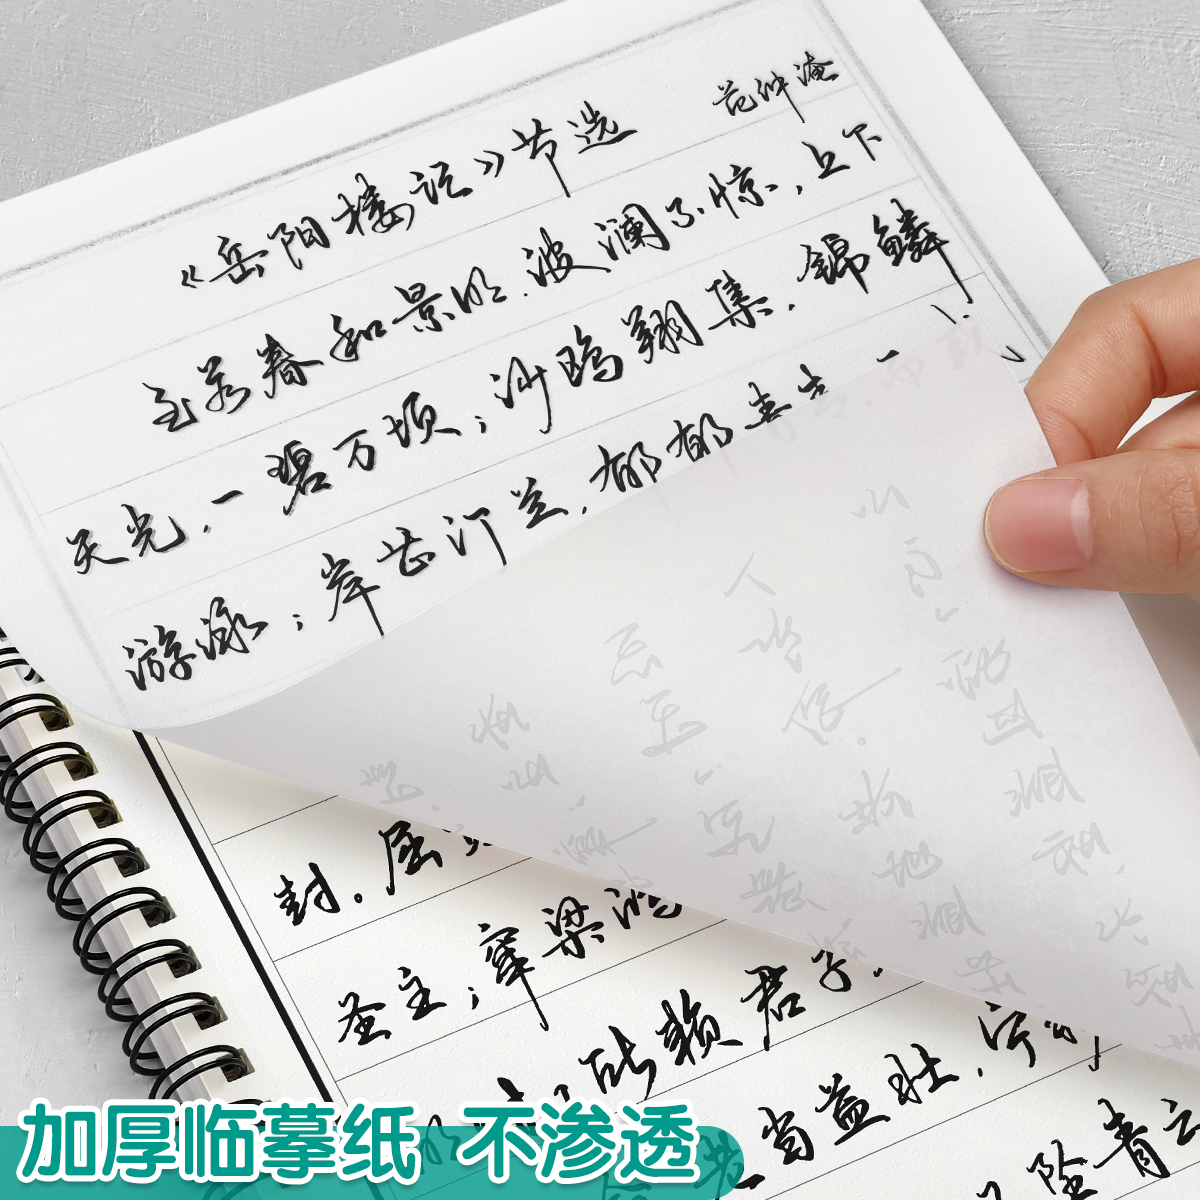 《岳阳楼记》节选
范仲淹
至若春和景明，波澜不惊，上下
天光，一碧万顷；沙鸥翔集，锦鳞
游泳；岸芷汀兰，郁郁青青。而
封。屈
圣主；窜梁鸿
所赖君子
当益壮，宁
坠青云
加厚临摹纸 不渗透